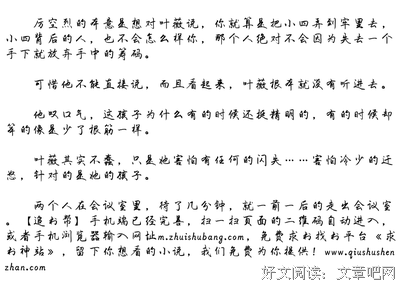 厉空烈的本意是想对叶薇说，你就算是把小四弄到牢里去，
小四背后的人，也不会怎么样你，那个人绝对不会因为失去一个
手下就放弃手中的筹码。
可惜他不能直接说，而且看起来，叶薇根本就没有听进去。
他叹口气，这孩子为什么有的时候还挺精明的，有的时候却
笨的像是少了根筋一样。
叶薇其实不蠢，只是她害怕有任何的闪失……害怕冷少的迁
怒，针对的是她的孩子。
两个人在会议室里，待了几分钟，就一前一后的走出会议室
。【追书帮】手机端已经完善，扫一扫页面的二维码自动进入，
或者手机浏览器输入网址m.zhuishubang.com，免费求书找书平台《求
书神站》，留下你想看的小说，我们免费为你提供！www.qiushushen
zhan.com
好文阅读：文章吧网